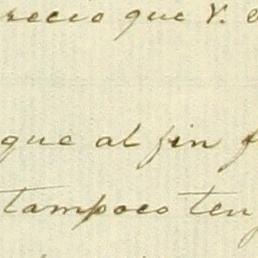 recio que V.
que al fin
tampoco ten